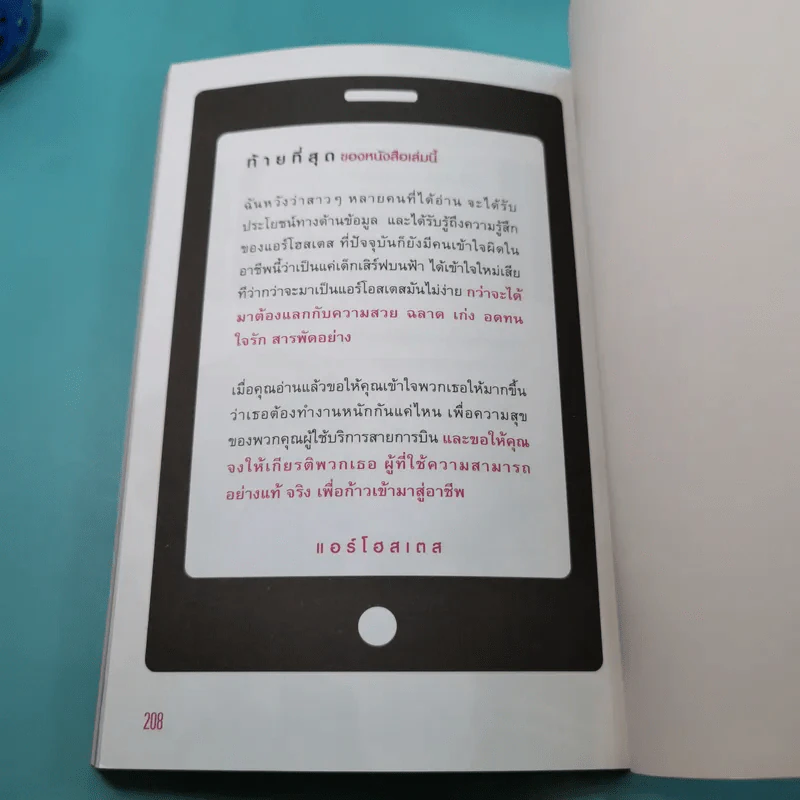 ท้ายที่สุด ของหนังสือเล่มนี้
ฉันหวังว่าสาวๆ หลายคนที่ได้อ่าน จะได้รับ
ประโยชน์ทางด้านข้อมูล และได้รับรู้ถึงความรู้สึก
ของแอร์โฮสเตส ที่ปัจจุบันก็ยังมีคนเข้าใจผิดใน
อาชีพนี้ว่าเป็นแค่เด็กเสิร์ฟบนฟ้า ได้เข้าใจใหม่เสีย
ทีว่ากว่าจะมาเป็นแอร์โอสเตสมันไม่ง่าย กว่าจะได้
มาต้องแลกกับความสวย ฉลาด เก่ง อดทน
ใจรัก สารพัดอย่าง
เมื่อคุณอ่านแล้วขอให้คุณเข้าใจพวกเธอให้มากขึ้น
ว่าเธอต้องทำงานหนักกันแค่ไหน เพื่อความสุข
ของพวกคุณผู้ใช้บริการสายการบิน และขอให้คุณ
จงให้เกียรติพวกเธอ ผู้ที่ใช้ความสามารถ
อย่างแท้ จริง เพื่อก้าวเข้ามาสู่อาชีพ
แอร์โฮสเตส
208